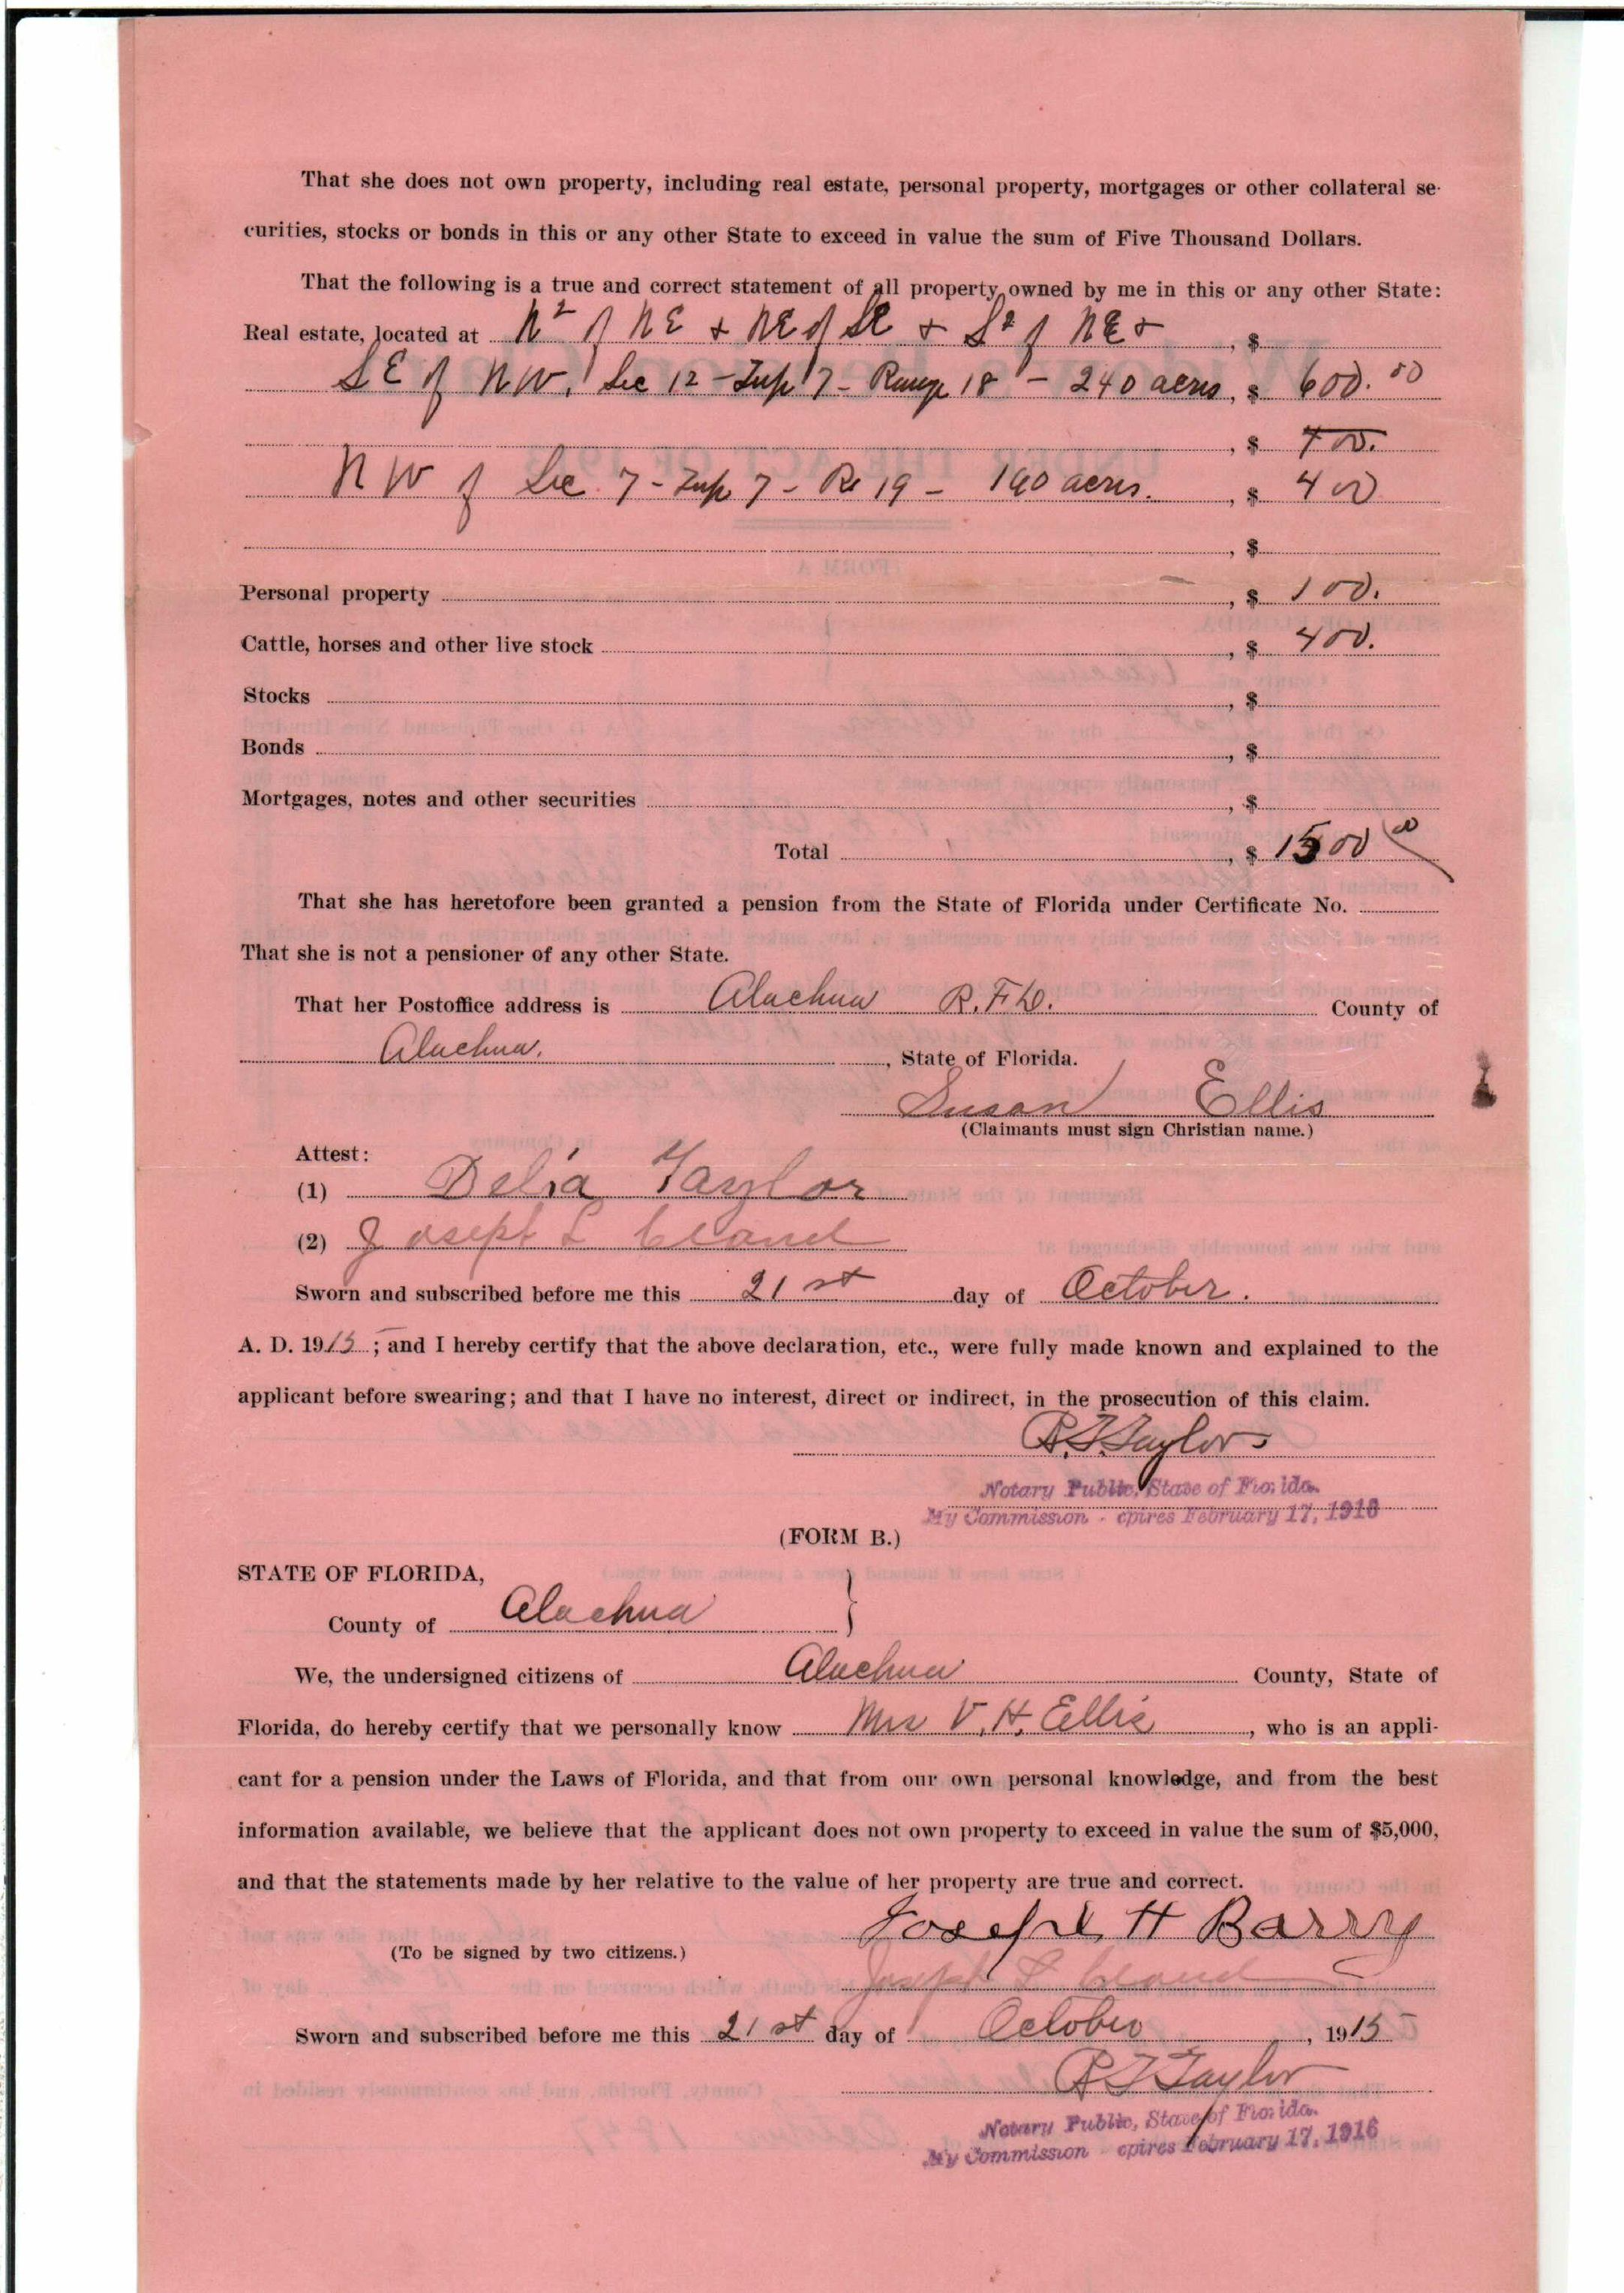 That she does not own property, including real estate, personal property, mortgages or other collateral se-
curities, stocks or bonds in this or any other State to exceed in value the sum of Five Thousand Dollars.
That the following is a true and correct statement of all property owned by me in this or any other State:
Real estate, located at N2 of NE + NE of SE + S2 of NE + , $
SE of NW. Sec 12 - Twp 7 - Range 18 - 240 acres , $ 600.00
, $ 400.
NW of Sec 7 - Twp 7 - Re 19 - 160 acres. , $ 400
, $
Personal property , $ 100.
Cattle, horses and other live stock , $ 400.
Stocks , $
Bonds , $
Mortgages, notes and other securities , $
Total , $ 1500 00
That she has heretofore been granted a pension from the State of Florida under Certificate No.
That she is not a pensioner of any other State.
That her Postoffice address is Alachua R.F.D. County of
Alachua. , State of Florida.
Susan Ellis
(Claimants must sign Christian name.)
Attest:
(1) Delia Taylor
(2) Joseph L Cland
Sworn and subscribed before me this 21st day of October.
A. D. 1915 ; and I hereby certify that the above declaration, etc., were fully made known and explained to the
applicant before swearing; and that I have no interest, direct or indirect, in the prosecution of this claim.
R.T. Taylor
Notary Public, State of Florida.
My Commission expires February 17, 1916
(FORM B.)
STATE OF FLORIDA,
County of Alachua }
We, the undersigned citizens of Alachua County, State of
Florida, do hereby certify that we personally know Mrs V. H. Ellis , who is an appli-
cant for a pension under the Laws of Florida, and that from our own personal knowledge, and from the best
information available, we believe that the applicant does not own property to exceed in value the sum of $5,000,
and that the statements made by her relative to the value of her property are true and correct.
Joseph H Barry
(To be signed by two citizens.)
Joseph L Cland
Sworn and subscribed before me this 21st day of October , 1915
R T Taylor
Notary Public, State of Florida.
My Commission expires February 17, 1916